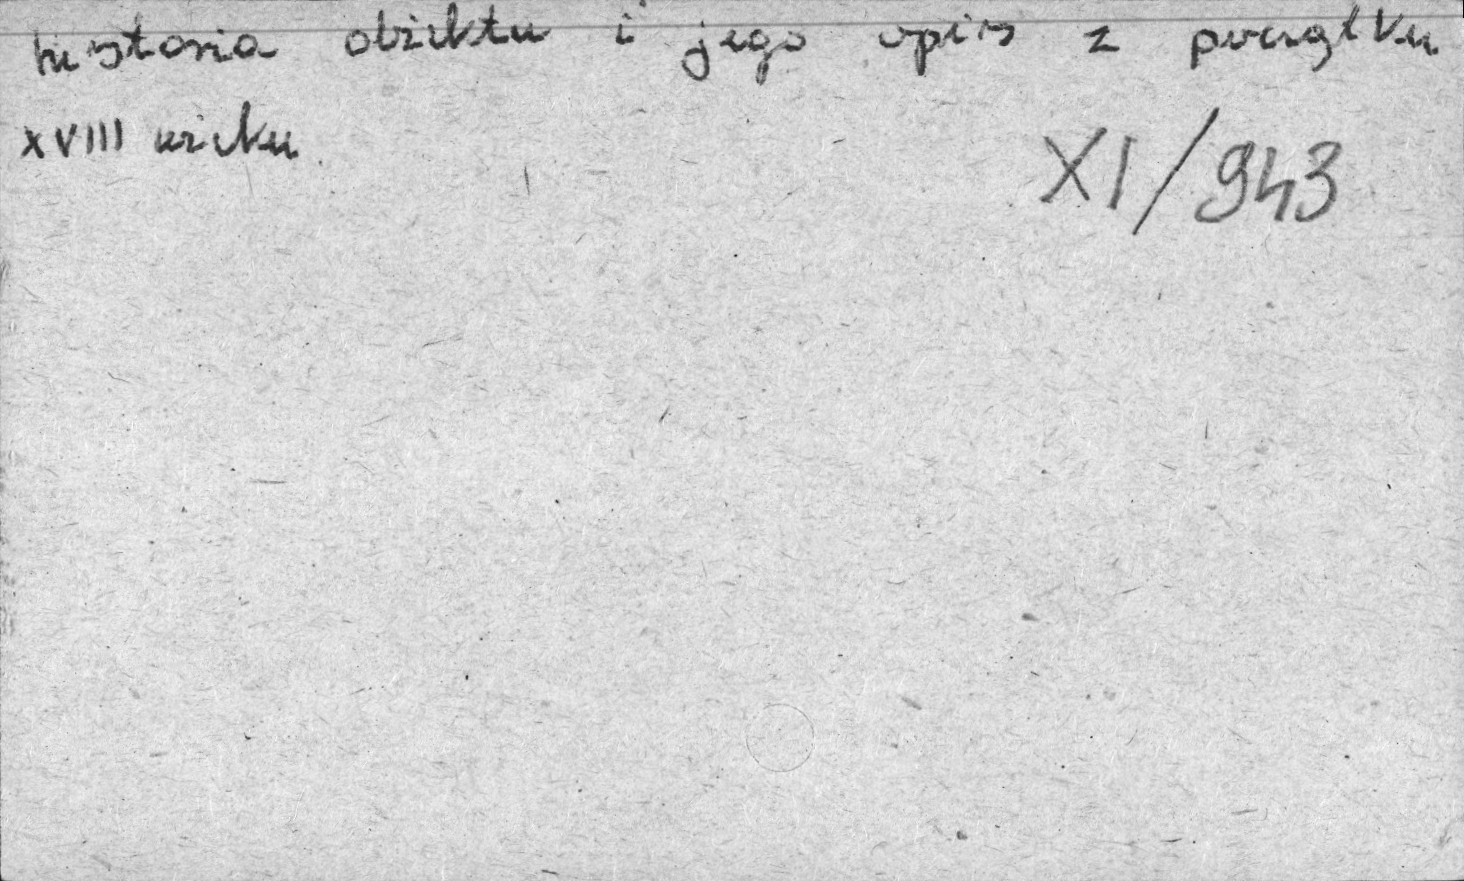 historia obiektu i jego opis z początku
XVIII wieku.
XI/943